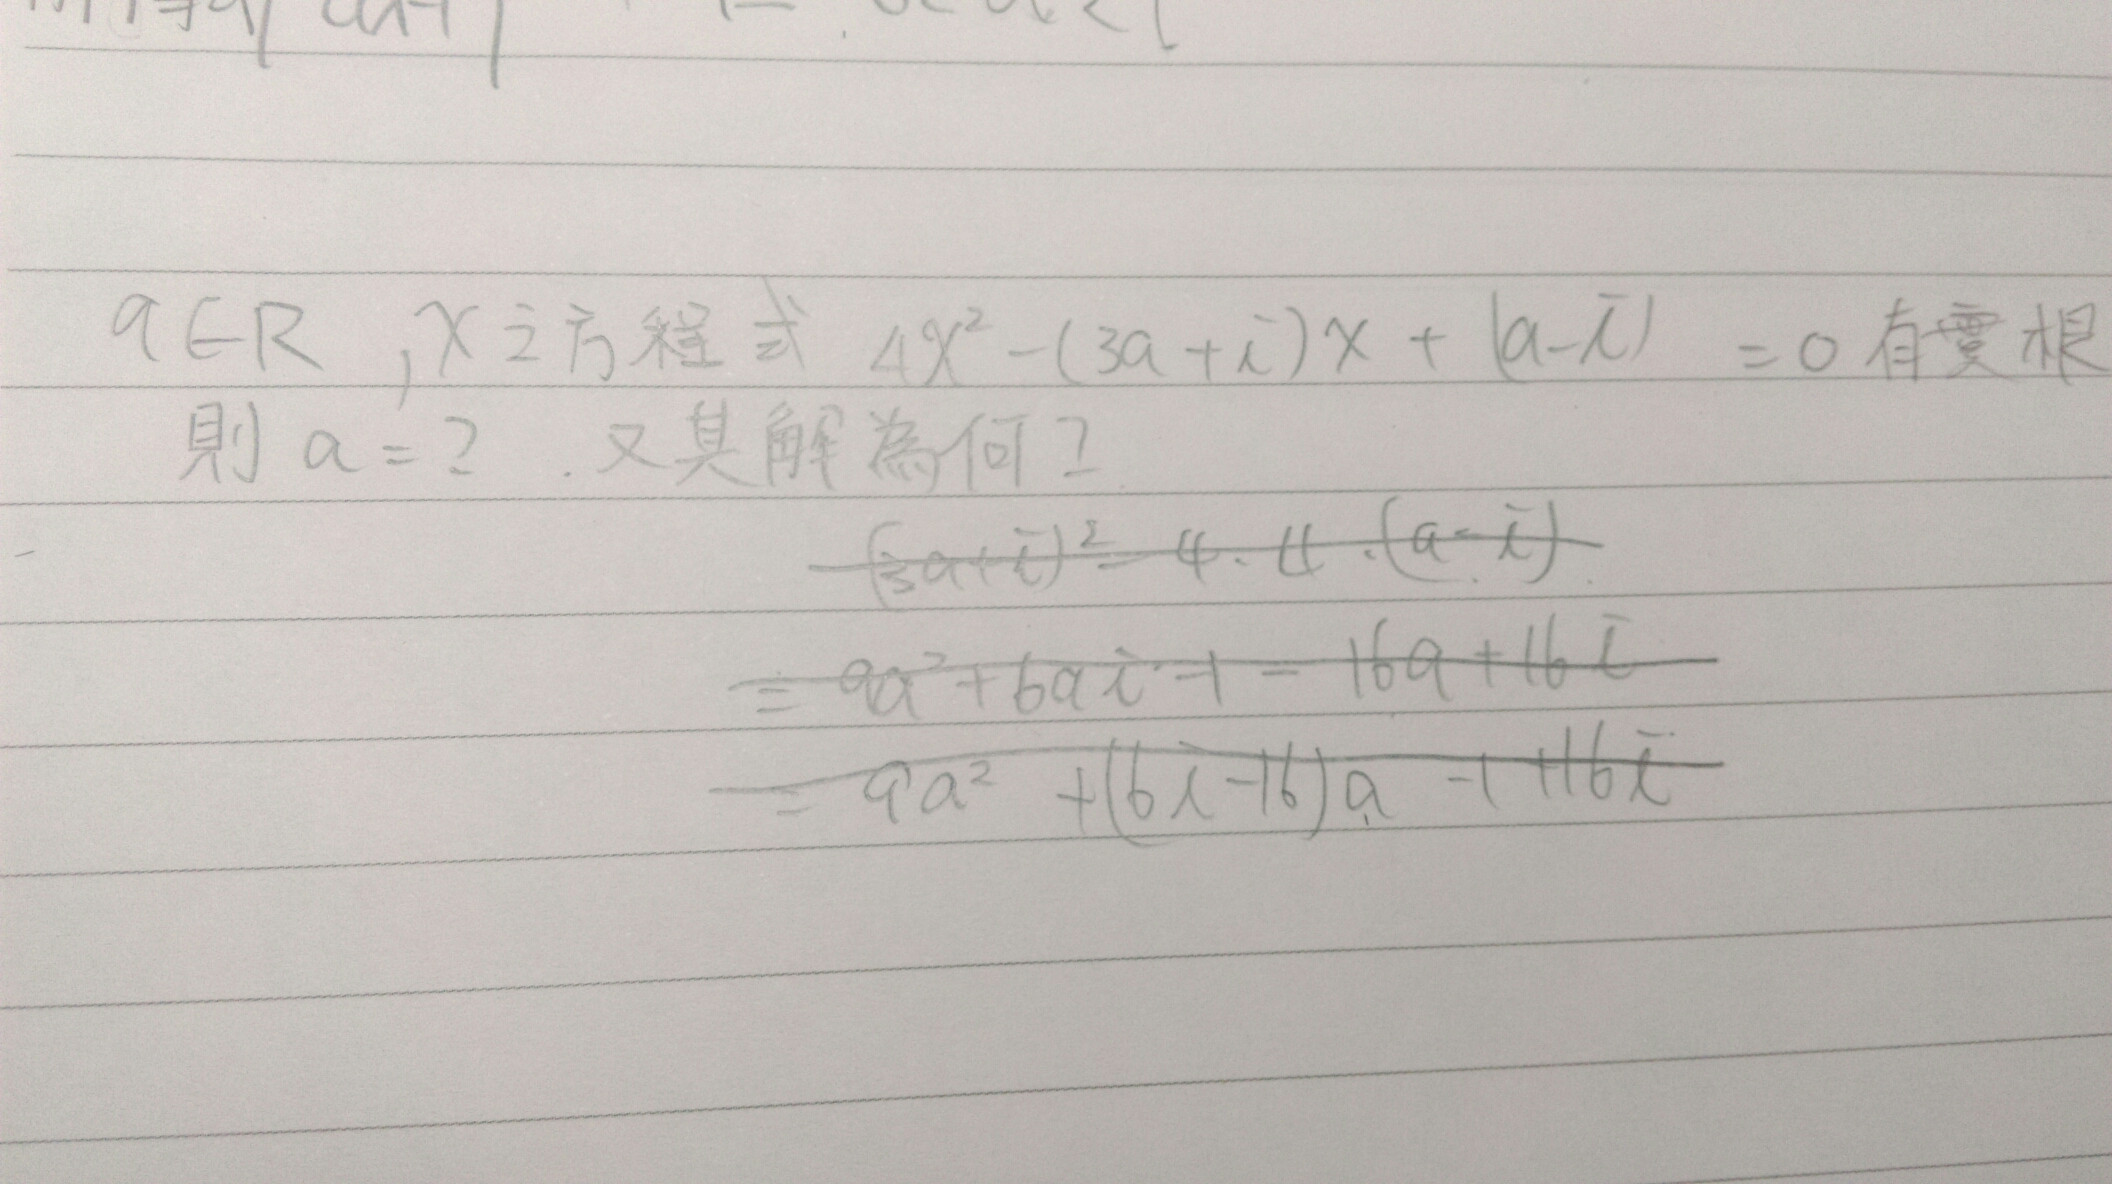 a∈R , x之方程式 4x² - (3a + i)x + (a - i) = 0 有實根
則 a = ? . 又其解為何?
(3a+i)² - 4 · 4 · (a - i)
= 9a² + 6ai - 1 - 16a + 16i
= 9a² + (6i - 16)a - 1 + 16i